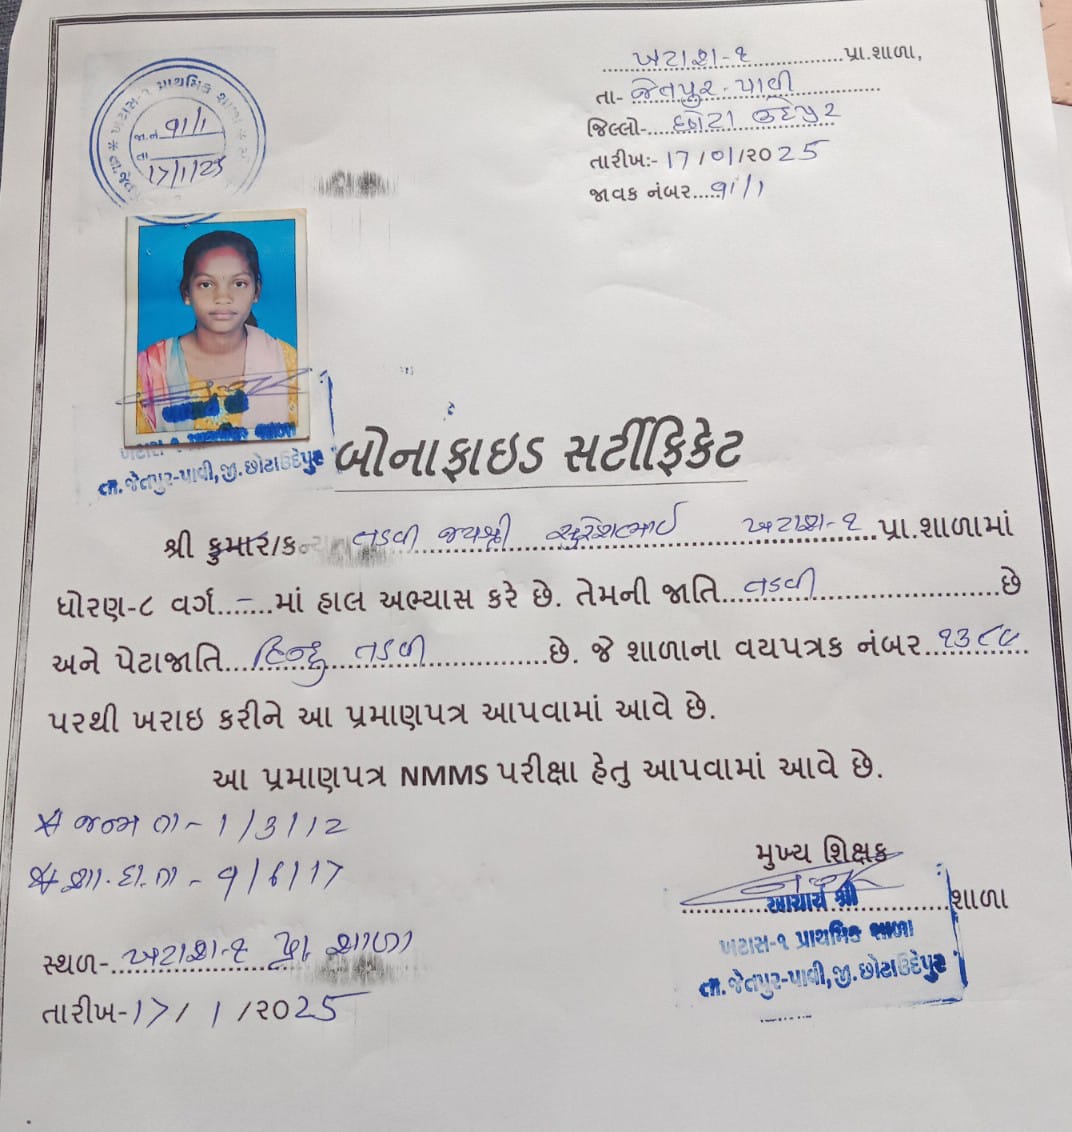 ખટાશ-૧ પ્રા.શાળા,
તા- જેતપુર-પાવી
જિલ્લો- છોટા ઉદેપુર
તારીખ:- 17/01/2025
જાવક નંબર.....91/1
ખટાસ-૧ પ્રાથમિક શાળા
જા.નં 91/1
તા 17/1/25
આચાર્ય શ્રી
ખટાસ-૧ પ્રાથમિક શાળા
તા.જેતપુર-પાવી, જી.છોટાઉદેપુર
બોનાફાઇડ સર્ટીફિકેટ
શ્રી કુમાર/કન્યા તડવી જયશ્રી સુરેશભાઈ ખટાશ-૧ પ્રા.શાળામાં
ધોરણ-૮ વર્ગ...-...માં હાલ અભ્યાસ કરે છે. તેમની જાતિ તડવી છે
અને પેટાજાતિ હિન્દુ તડવી છે. જે શાળાના વયપત્રક નંબર
પરથી ખરાઇ કરીને આ પ્રમાણપત્ર આપવામાં આવે છે.
આ પ્રમાણપત્ર NMMS પરીક્ષા હેતુ આપવામાં આવે છે.
* જન્મ તા - 1/3/12
* શા. દા. તા - 9/6/17
મુખ્ય શિક્ષક
શાળા
આચાર્ય શ્રી
ખટાસ-૧ પ્રાથમિક શાળા
તા.જેતપુર-પાવી, જી.છોટાઉદેપુર
સ્થળ- ખટાશ-૧ પ્રા શાળા
તારીખ-17/1/2025